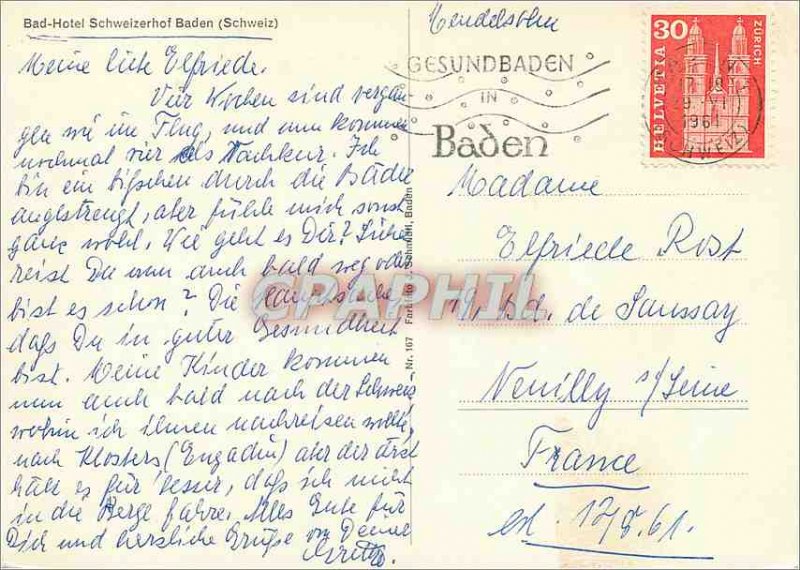 Bad-Hotel Schweizerhof Baden (Schweiz)
Meine liebe Elfriede.
Vier Wochen sind vergan-
gen wie im Flug, und nun kommen
nochmal vier als Nachkur. Ich
bin ein bißchen durch die Bäder
angestrengt, aber fühle mich sonst
ganz wohl. Wie geht es Dir?
reist Du nun auch bald weg oder
bist es schon? Die Hauptsache,
daß Du in guter Gesundheit
bist. Meine Kinder kommen
nun auch bald nach der Schweiz
wohin ich Ihnen nachreisen wollte,
nach Klosters (Engadin) aber der Arzt
hält es für besser, daß ich nicht
in die Berge fahre. Alles Gute für
Dich und herzliche Grüße von Deiner
Nr. 167 Farbfoto Schmidli, Baden
Mendelsohn
GESUNDBADEN
IN
Baden
HELVETIA 30 ZÜRICH
1961
(SCHWEIZ)
Madame
Elfriede Rost
19, Bd. de Saussay
Neuilly s/Seine
France
CPAPHIL